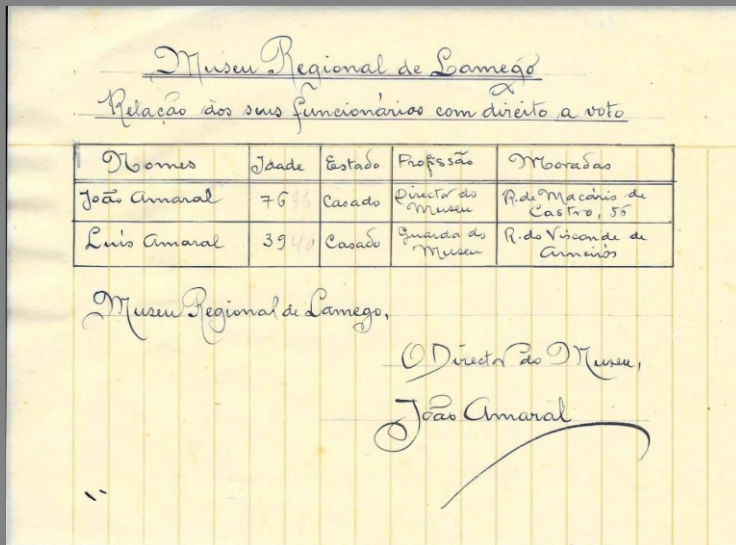 Museu Regional de Lamego
Relação dos seus funcionários com direito a voto
Nomes Idade Estado Profissão Moradas
João Amaral 76 Casado Director do Museu R. de Macário de Castro, 55
Luís Amaral 39 Casado Guarda do Museu R. do Visconde de Arneirós
Museu Regional de Lamego,
O Director do Museu,
João Amaral